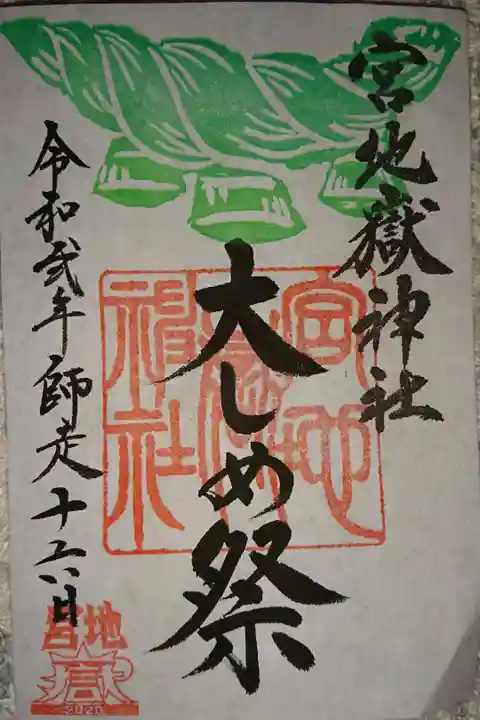 宮地嶽神社
大しめ祭
令和弐年師走十六日
宮地
嶽
神社
宮地
嶽
2020